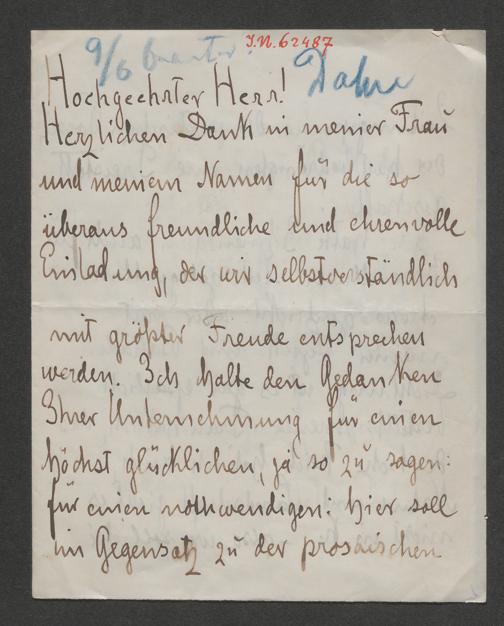 J.N. 62487
9/6
Hochgeehrter Herr!
Herzlichen Dank in meiner Frau
und meinem Namen für die so
überaus freundliche und ehrenvolle
Einladung, der wir selbstverständlich
mit größter Freude entsprechen
werden. Ich halte den Gedanken
Ihrer Unternehmung für einen
höchst glücklichen, ja so zu sagen:
für einen nothwendigen: hier soll
im Gegensatz zu der prosaischen